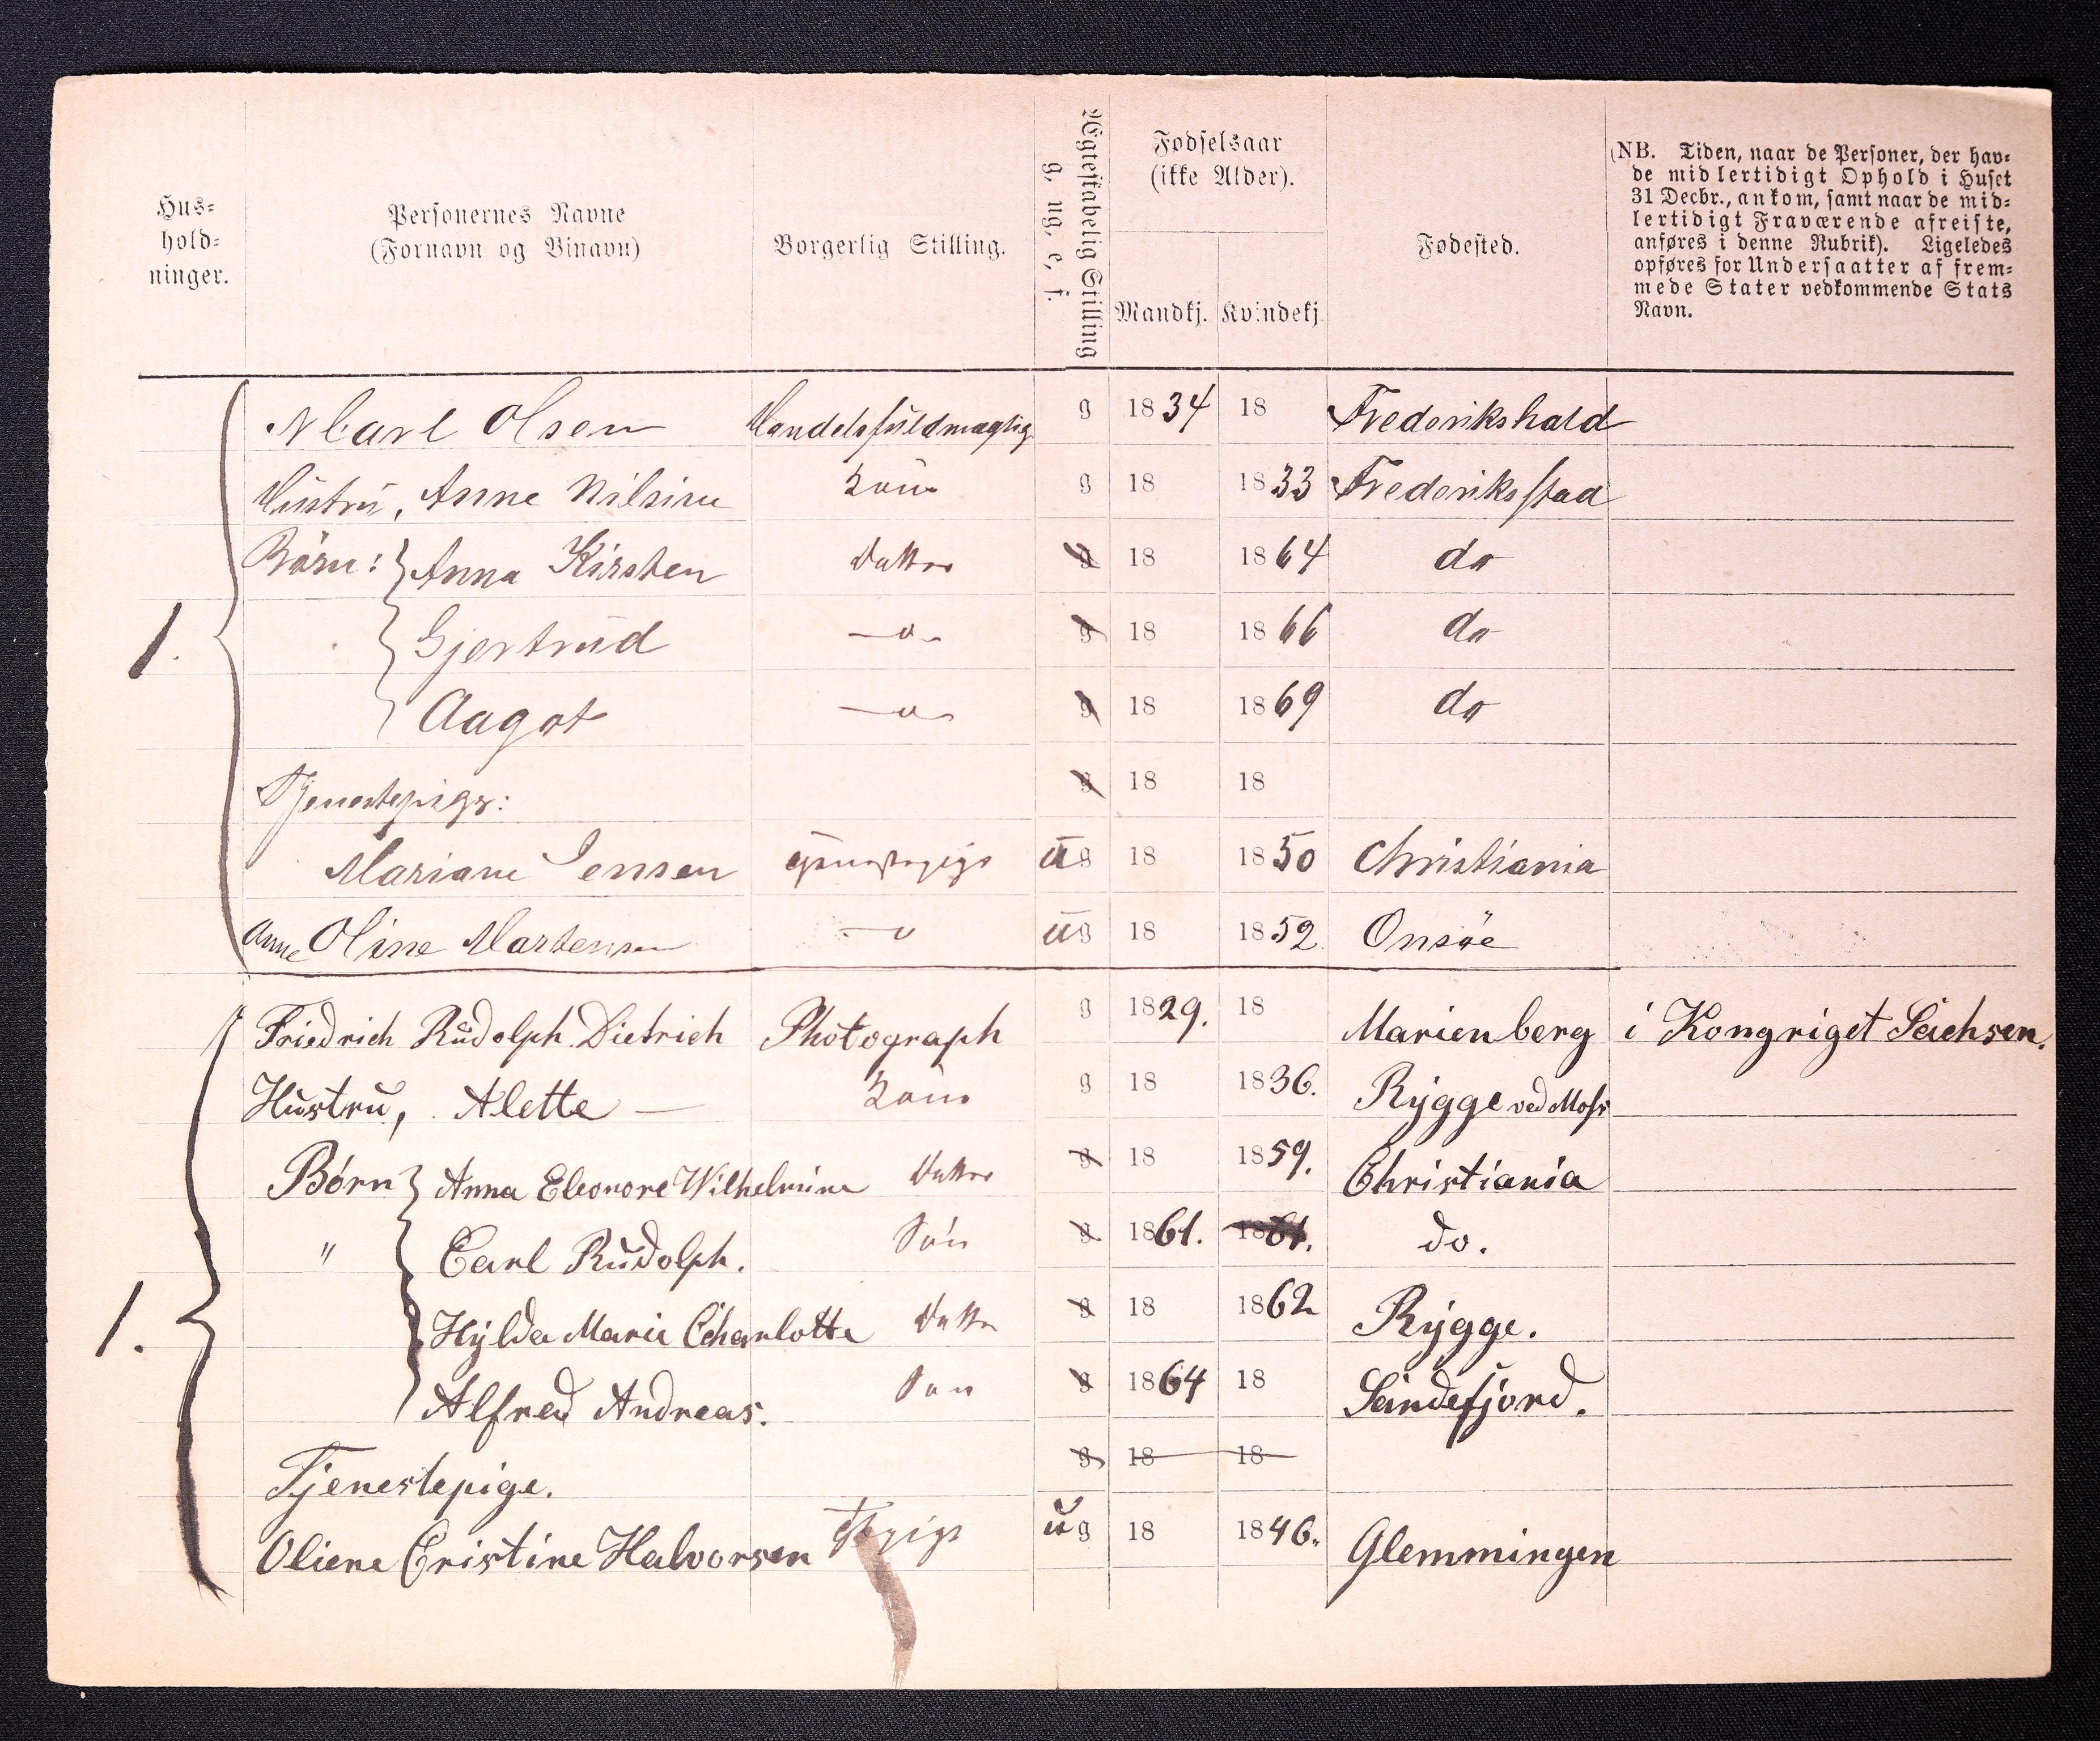 Hus-
hold-
ninger.
Personernes Navne
(Fornavn og Vinavn)
Borgerlig Stilling.
Ægteskabelig Stilling
g, ug, e, f.
Fødselsaar
(ikke Alder).
Mandkj. Kvindekj
Fødested.
(NB. Tiden, naar de Personer, der hav-
de midlertidigt Ophold i Huset
31 Decbr., ankom, samt naar de mid-
lertidigt Fraværende afreiste,
anføres i denne Rubrik). Ligeledes
opføres for Undersaatter af frem-
mede Stater vedkommende Stats
Navn.
1.
Olsen Handelsfuldmægtig g 1834 18 Frederikshald
Hustru, Anne Nilsine Kone g 18 1833 Frederiksstad
Börn: Anna Kirsten Datter g 18 1864 do
Gjertrud —o— g 18 1866 do
Aagot —o— g 18 1869 do
Tjenestepiger: g 18 18
Mariane Jensen Tjenestepige ug 18 1850 Christiania
Anne Oline Martensen —o ug 18 1852 Onsöe
1.
Friedrich Rudolph Dietrich Photograph g 1829. 18 Marienberg i Kongriget Sachsen.
Hustru, Alette — Kone g 18 1836. Rygge ved Moss
Børn Anna Eleonore Wilhelmine Datter g 18 1859. Christiania
" Carl Rudolph. Søn g 1861. 1861. do.
Hylda Marie Charlotte Datter g 18 1862 Rygge.
Alfred Andreas. Søn g 1864 18 Sandefjord.
Tjenestepige. g 18 18
Oliene Cristine Halvorsen Tjpige ug 18 1846. Glemmingen